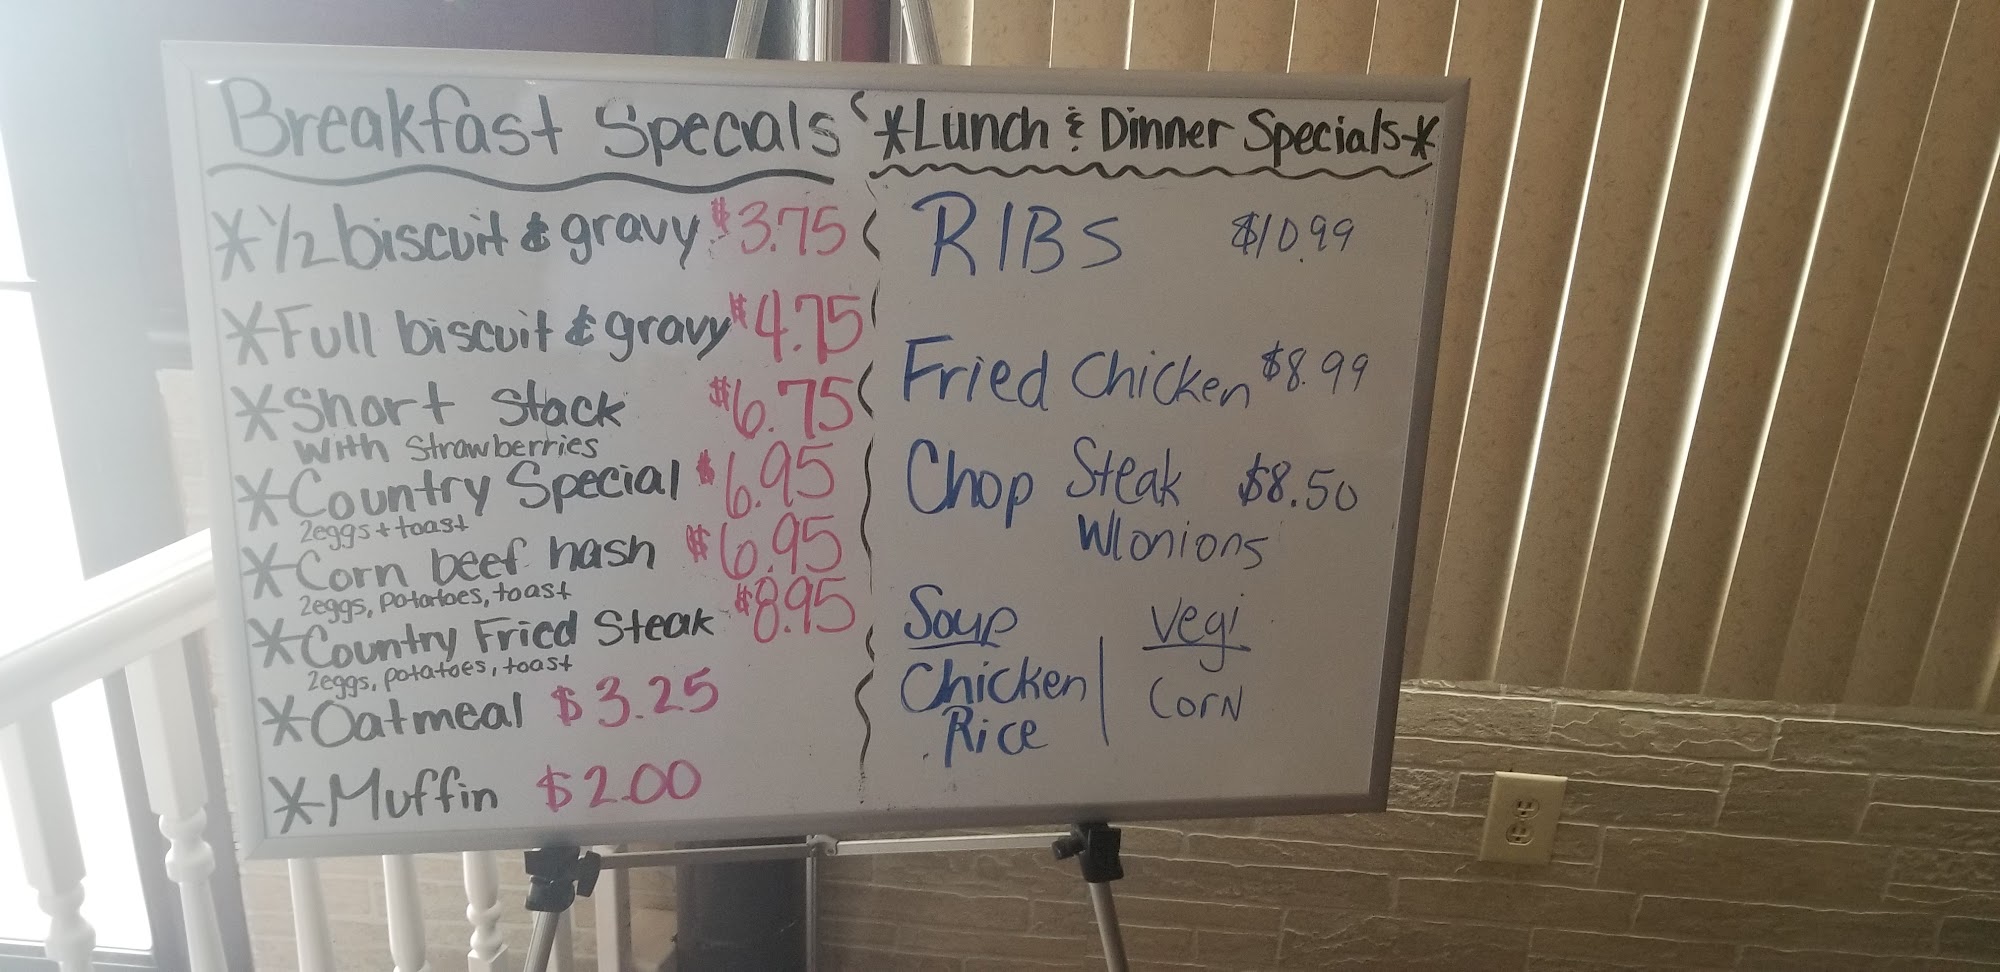 Breakfast Specials
*1/2 biscuit & gravy $3.75
*Full biscuit & gravy $4.75
*Short Stack $6.75
with Strawberries
*Country Special $6.95
2eggs + toast
*Corn beef hash $6.95
2eggs, potatoes, toast
*Country Fried Steak $8.95
2eggs, potatoes, toast
*Oatmeal $3.25
*Muffin $2.00
*Lunch & Dinner Specials*
RIBS $10.99
Fried Chicken $8.99
Chop Steak $8.50
W/onions
Soup
Chicken
Rice
Vegi
Corn